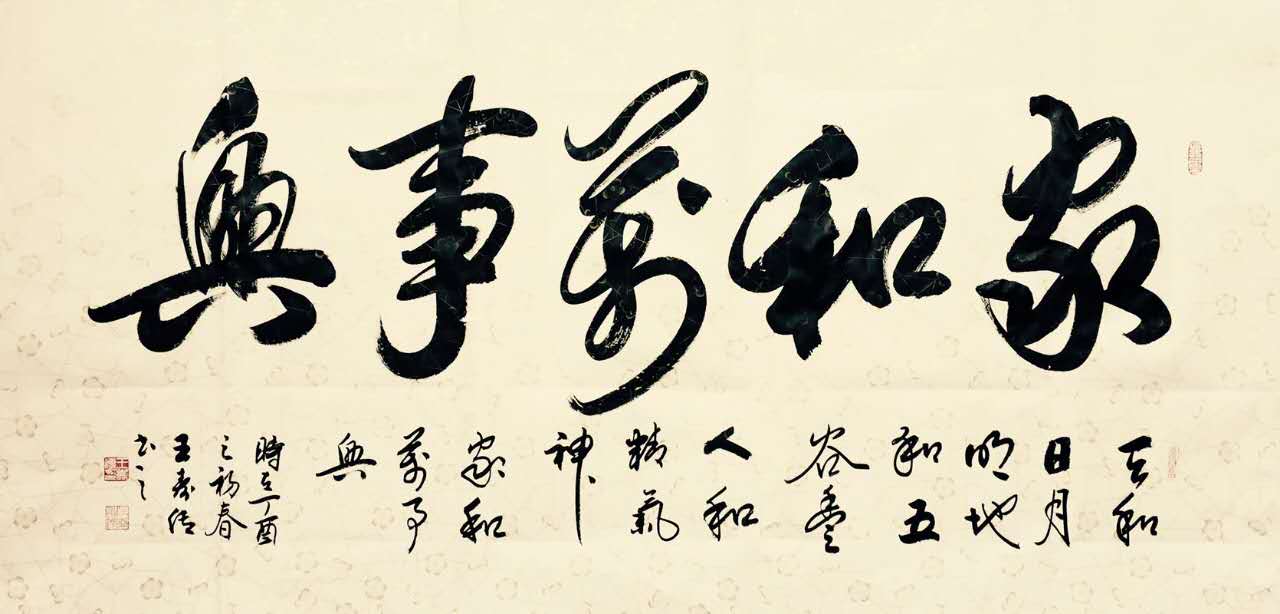 家和萬事興
天和
日月
明地
和五
谷豐
人和
精氣
神
家和
萬事
興
時在丁酉
之初春
王
书之